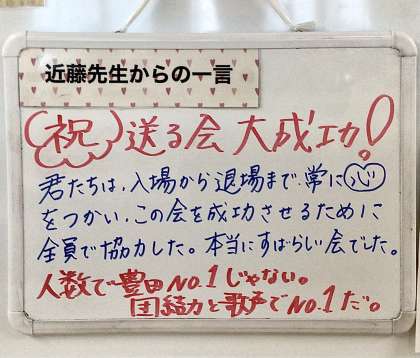 近藤先生からの一言
祝 送る会 大成功!
君たちは、入場から退場まで、常に心
をつかい、この会を成功させるために
全員で協力した。本当にすばらしい会でした。
人数で豊田No.1じゃない。
団結力と歌声でNo.1だ。